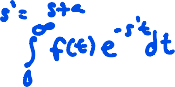 s' = s+a
∫₀^∞ f(t) e^{-s't} dt